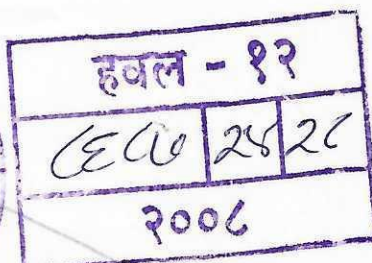 हवल - १२
८६८७ २४ २८
२००८